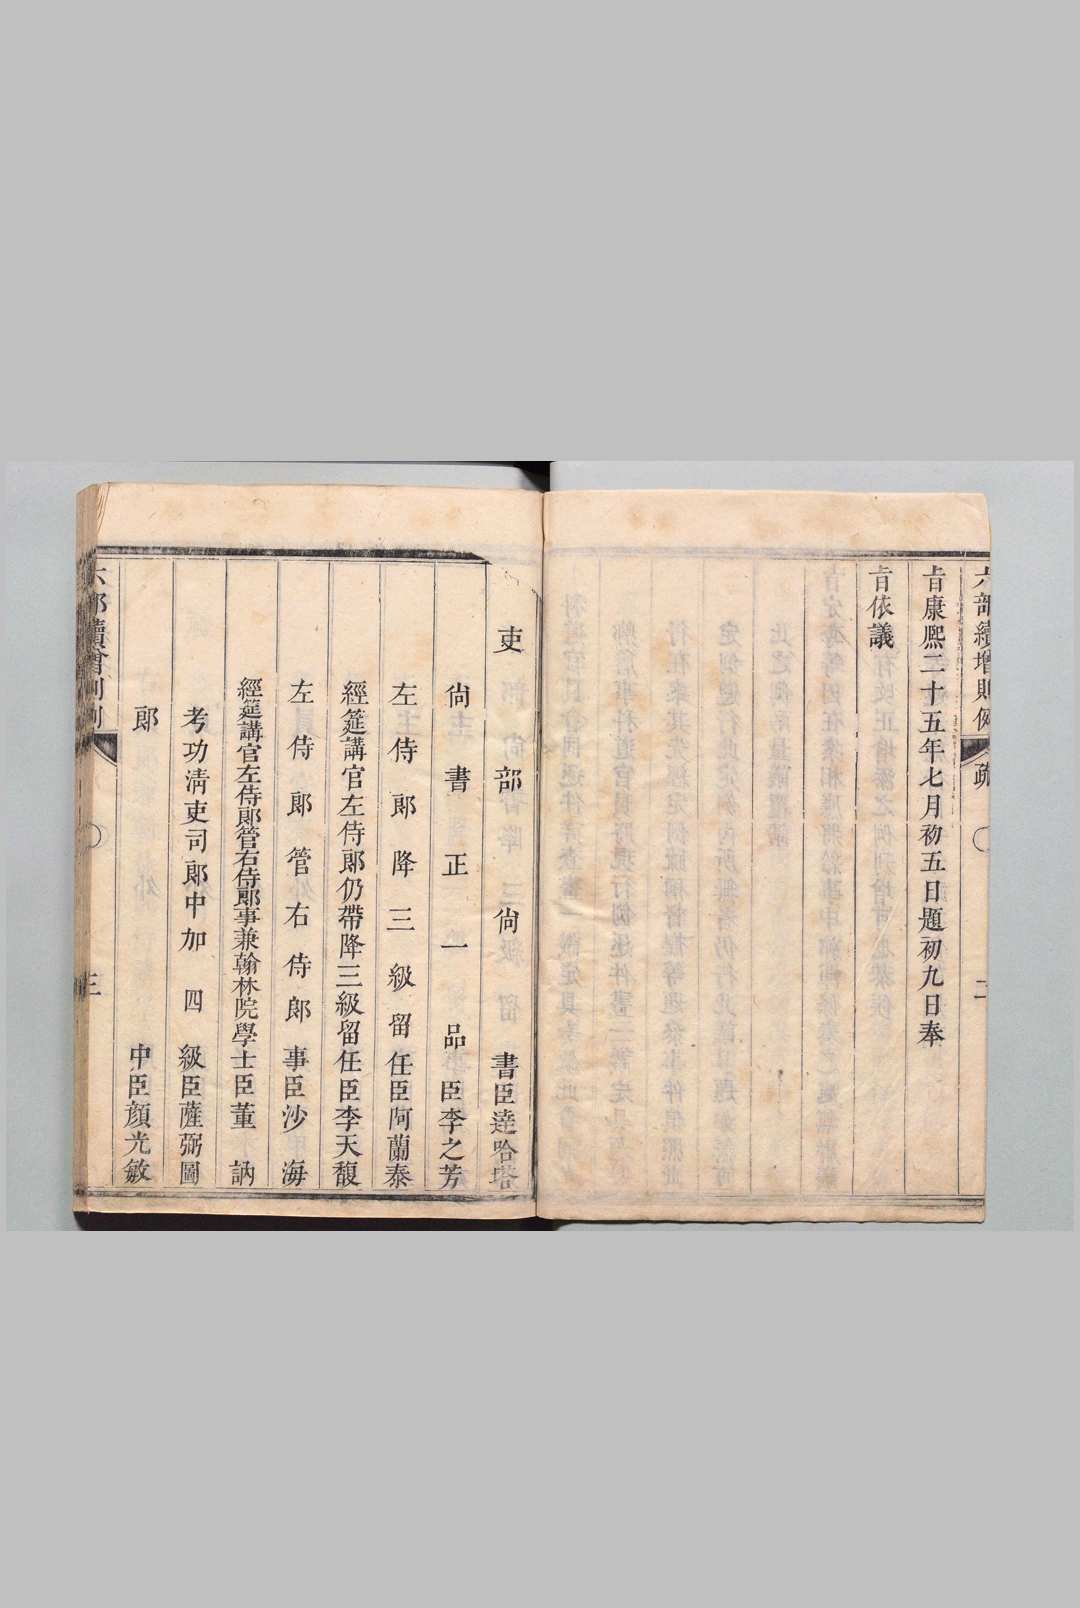 六部續增則例 疏 二
旨康熙二十五年七月初五日題初九日奉
旨依議
吏部尚書臣達哈塔
尚書正一品臣李之芳
左侍郎降三級留任臣阿蘭泰
經筵講官左侍郎仍帶降三級留任臣李天馥
左侍郎管右侍郎事臣沙海
經筵講官左侍郎管右侍郎事兼翰林院學士臣董訥
考功淸吏司郎中加四級臣薩弼圖
郎中臣顔光敏
六部續增則例 三